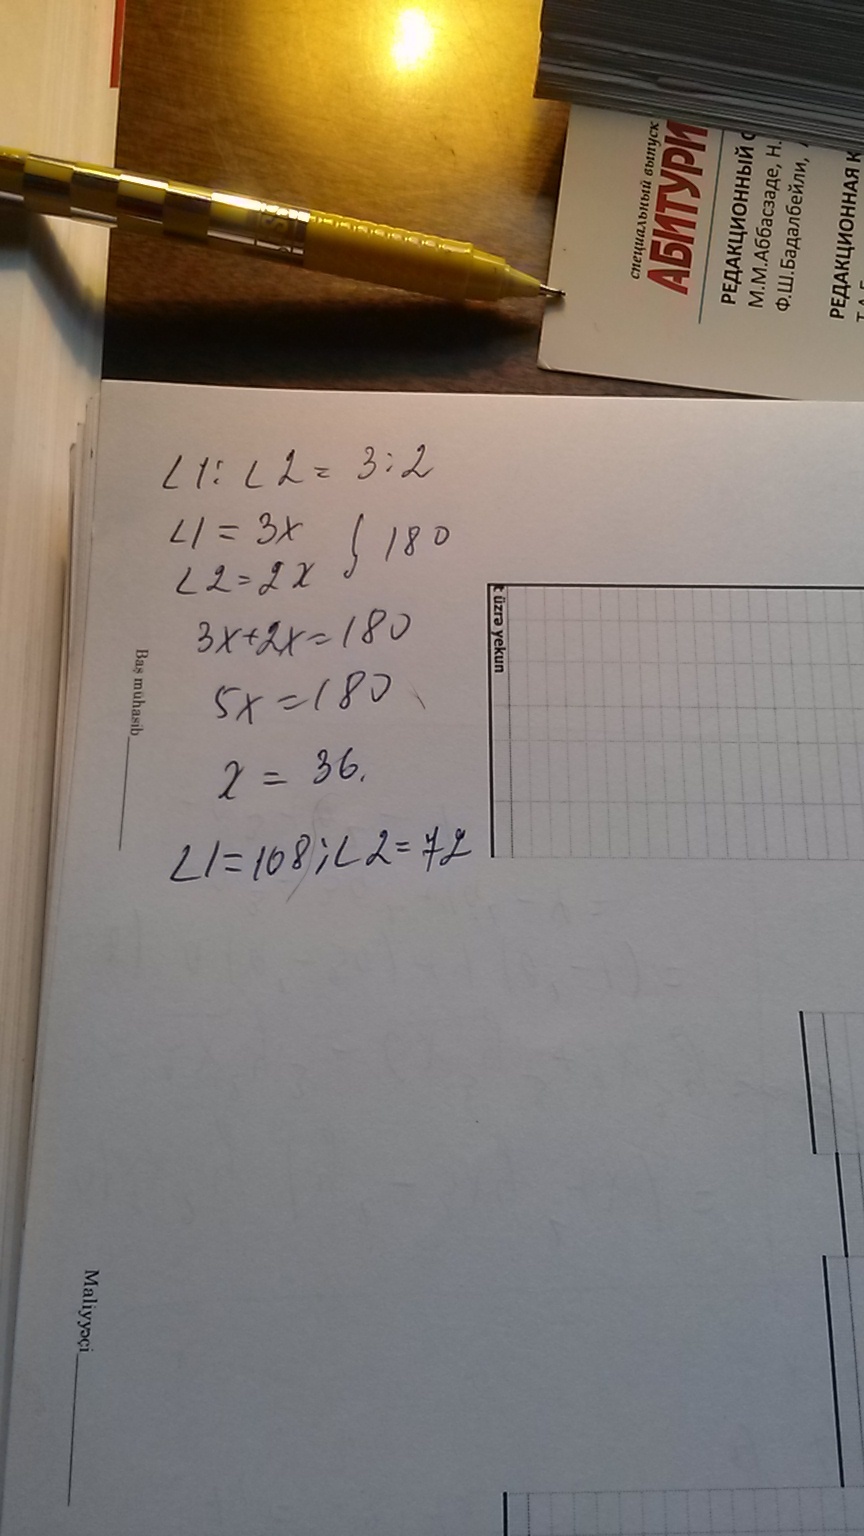 специальный выпуск
АБИТУРИ
РЕДАКЦИОННЫЙ С
М.М.Аббасзаде, Н.
Ф.Ш.Бадалбейли,
РЕДАКЦИОННАЯ К
∠1:∠2=3:2
∠1=3x
∠2=2x } 180
3x+2x=180
5x=180
x=36.
∠1=108;∠2=72
üzrə yekun
Baş mühasib
Maliyyəçi